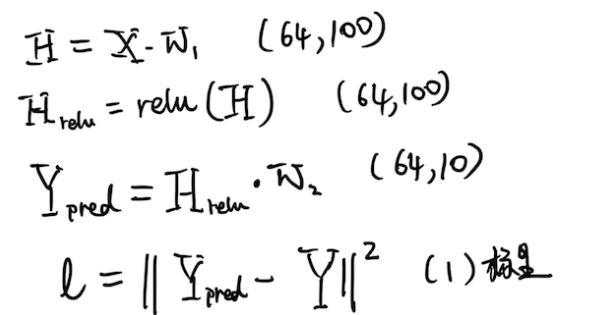 H = X · W₁ (64,100)
H_relu = relu(H) (64,100)
Y_pred = H_relu · W₂ (64,10)
l = ‖Y_pred - Y‖² (1) 标量